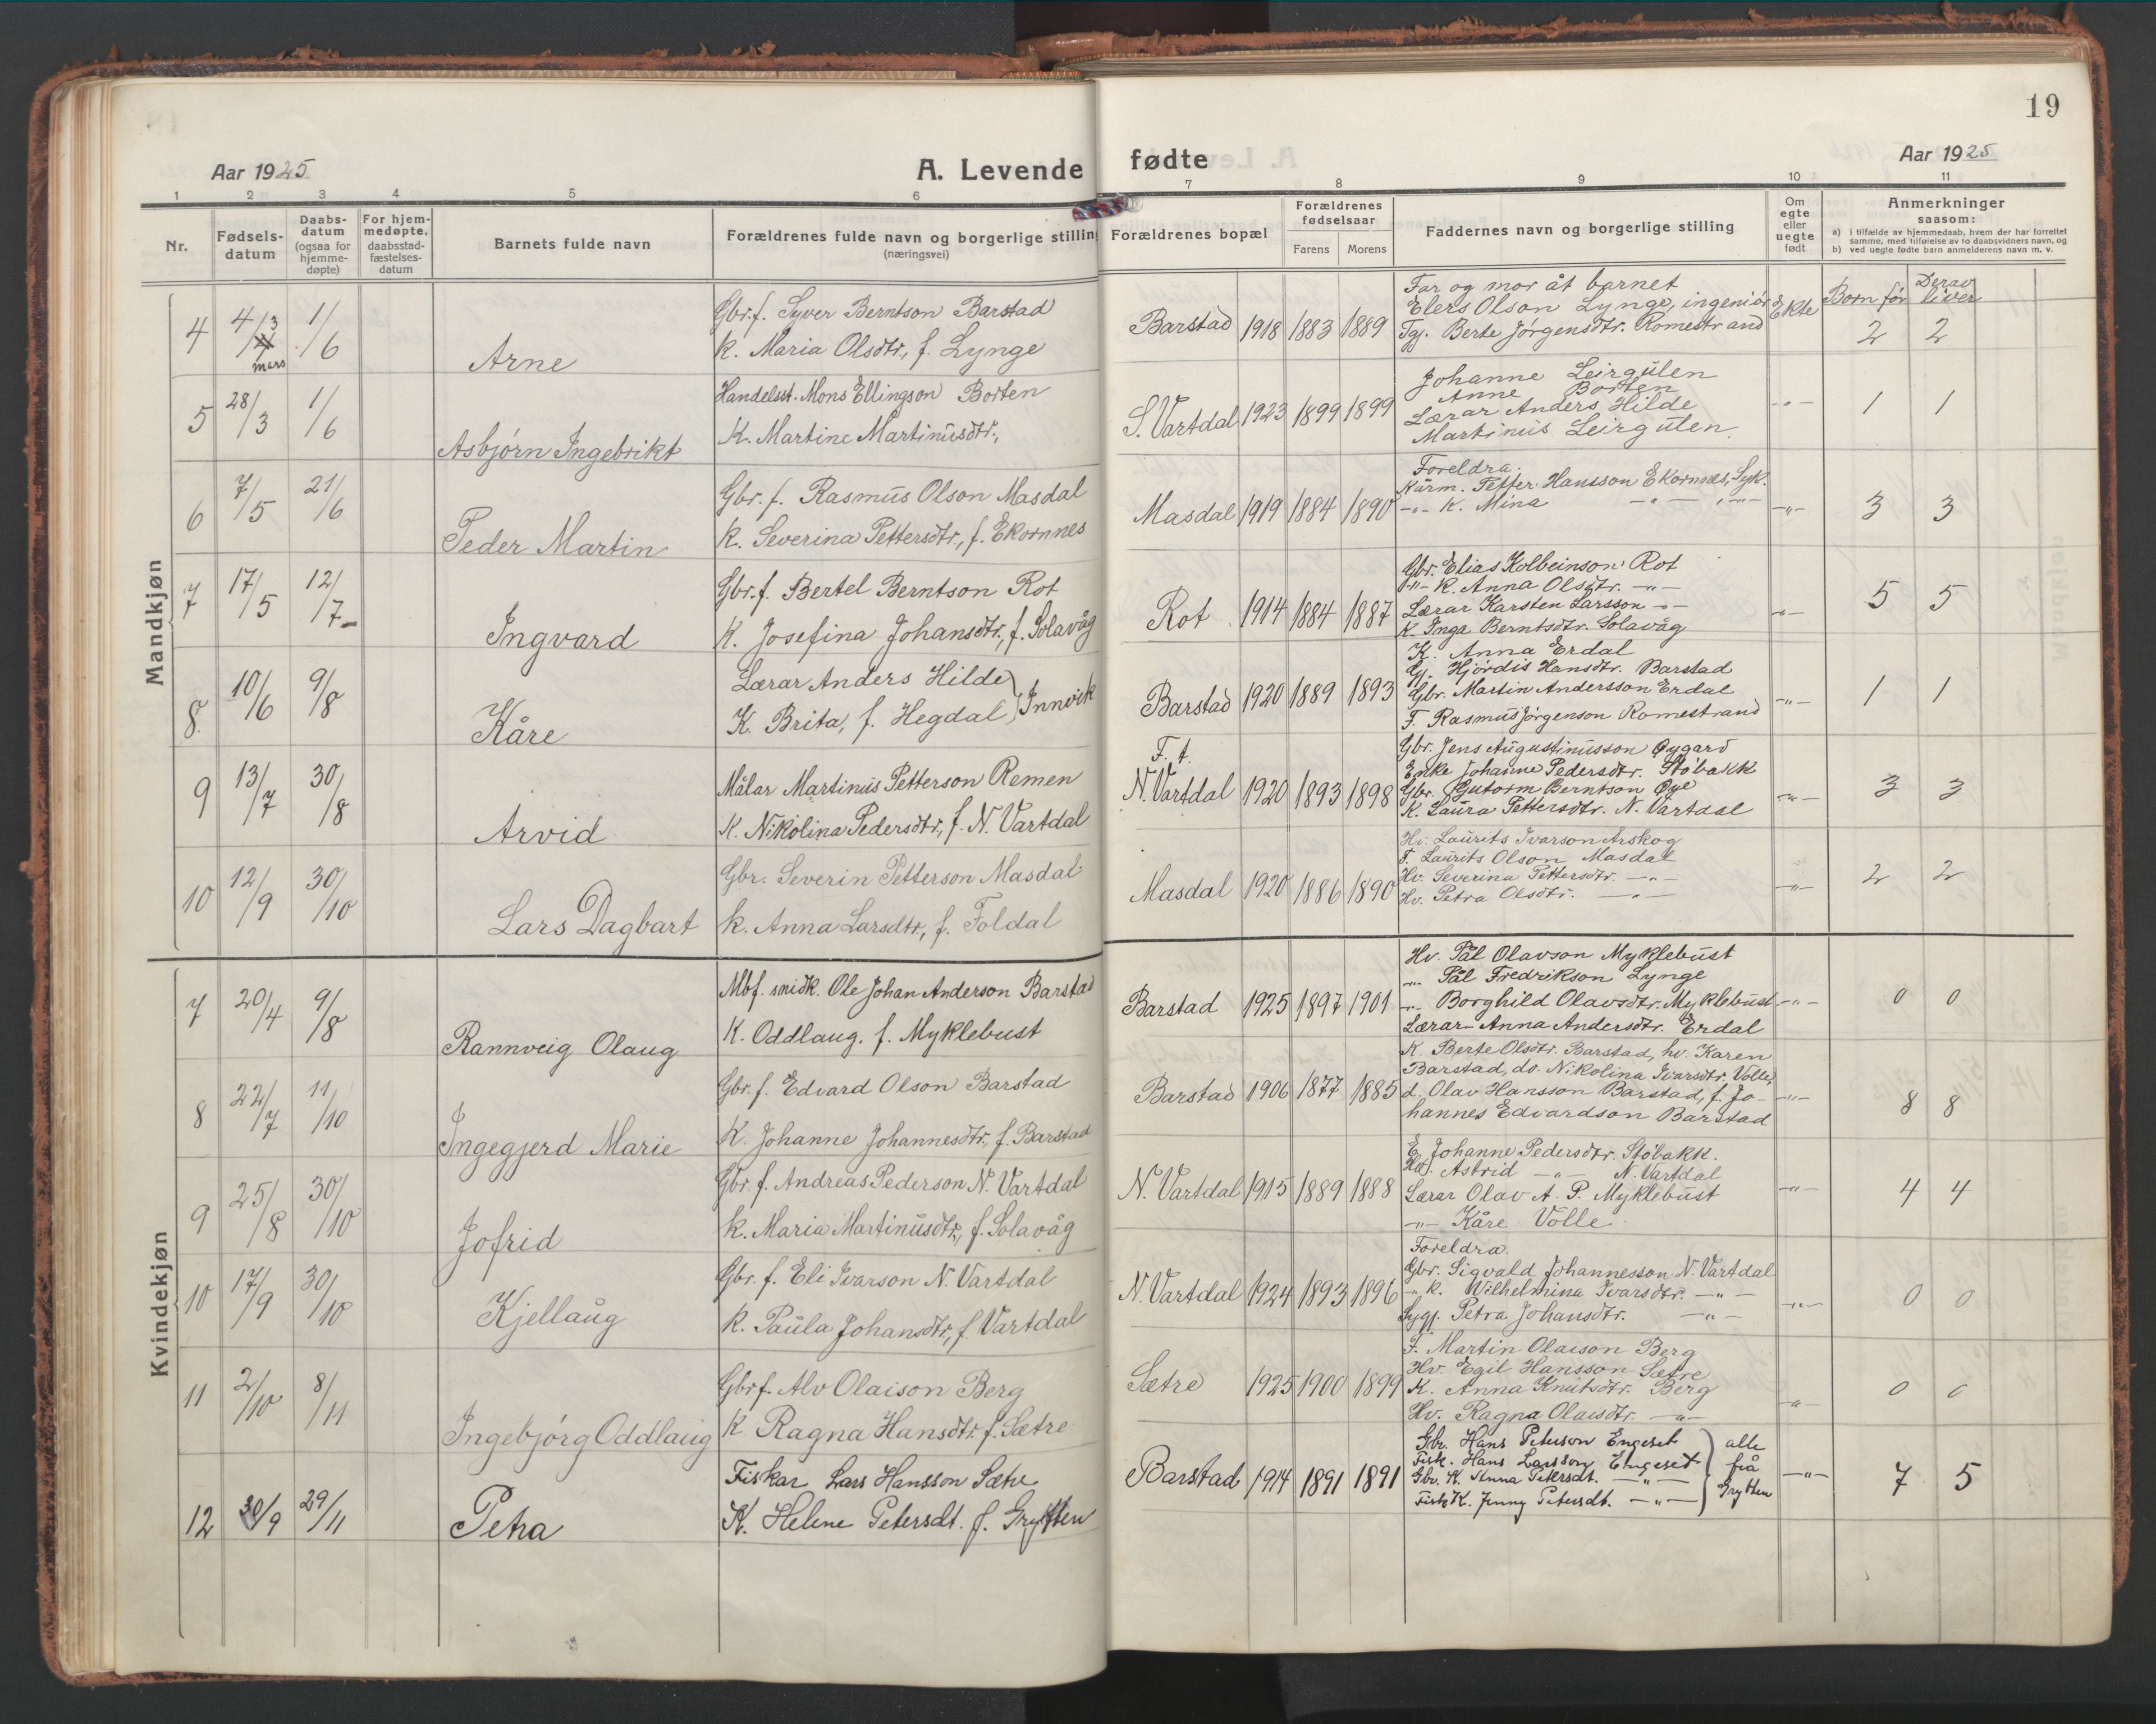 19
Aar 1925
A. Levende
fødte
Aar 1925
1 2 3 4 5 6 7 8 9 10 11
Nr.
Fødsels-
datum
Daabs-
datum
(ogsaa for
hjemme-
døpte)
For hjem-
medøpte.
daabsstad-
fæstelses-
datum
Barnets fulde navn
Forældrenes fulde navn og borgerlige stilling
(næringsvei)
Forældrenes bopæl
Forældrenes
fødselsaar
Farens Morens
Faddernes navn og borgerlige stilling
Om
egte
eller
uegte
født
Anmerkninger
saasom:
a) i tilfælde av hjemmedaab, hvem der har forrettet
samme, med tilføielse av to daabsvidners navn, og
b) ved uegte fødte barn anmelderens navn m. v.
Born før Derav liver
Mandkjøn
4 4/3 mars 1/6 Arne
Gbr.f. Syver Berntson Barstad
K. Maria Olsdtr., f. Lynge
Barstad 1918 1883 1889
Far og mor åt barnet
Elers Olson Lynge, ingeniør
Tgj. Berte Jørgensdtr. Romestrand
Ekte 2 2
5 28/3 1/6 Asbjørn Ingebrikt
Handelsst. Mons Ellingson Borten
K. Martine Martinusdtr.,
S. Vartdal 1923 1899 1899
Johanne Leirgulen
Anne Borten
Lærar Anders Hilde
Martinus Leirgulen.
-"- 1 1
6 7/5 21/6 Peder Martin
Gbr. f. Rasmus Olson Masdal
K. Severina Pettersdtr., f. Ekornnes
Masdal 1919 1884 1890
Foreldra.
Kårm. Petter Hansson Ekornnes, Syk.
-"- K. Mina -"- -"-
-"- 3 3
7 17/5 12/7 Ingvard
Gbr.f. Bertel Berntson Rot
K. Josefina Johansdtr., f. Solavåg
Rot 1914 1884 1887
Gbr. Elias Kolbeinson Rot
-"- K. Anna Olsdtr. -"-
Lærar Karsten Larsson -"-
K. Inga Berntsdtr. Solavåg
-"- 5 5
8. 10/6 9/8 Kåre
Lærar Anders Hilde
K. Brita, f. Hegdal } Innvik
Barstad 1920 1889 1893
K. Anna Erdal
Gj. Hjørdis Hansdtr. Barstad
Gbr. Martin Andersson Erdal
F. Rasmus Jørgenson Romestrand
-"- 1 1
9 13/7 30/8 Arvid
Målar Martinus Petterson Remen
K. Nikolina Pedersdtr., f. N. Vartdal
F. t.
N. Vartdal 1920 1893 1898
Gbr. Jens Augustinusson Øygard
Enke Johanne Pedersdtr. Støbakk
Gbr. Gutorm Berntson Øye
K. Laura Pettersdtr. N. Vartdal
-"- 3 3
10 12/9 30/10 Lars Dagbart
Gbr. Severin Petterson Masdal
K. Anna Larsdtr, f. Foldal
Masdal 1920 1886 1890
Hv. Laurits Ivarson Årskog
F. Laurits Olson Masdal
Hv. Severina Pettersdtr. -"-
Hv. Petra Olsdtr. -"-
-"- 2 2
Kvindekjøn
7 20/4 9/8 Rannveig Olaug
Mbf. smidk. Ole Johan Anderson Barstad
K. Oddlaug. f. Myklebust
Barstad 1925 1897 1901
Hv. Pål Olavson Myklebust
-"- Pål Fredrikson Lynge
-"- Borghild Olavsdtr. Myklebust
Lærar- Anna Andersdtr. Erdal
-"- 0 0
8 22/7 11/10 Ingegjerd Marie
Gbr. f. Edvard Olson Barstad
K. Johanne Johannesdtr., f. Barstad
Barstad 1906 1877 1885
K. Berte Olsdtr. Barstad, hv. Karen
Barstad, do. Nikolina Ivarsdtr. Volle,
d. Olav Hansson Barstad, f. Jo-
hannes Edvardson Barstad
-"- 8 8
9 25/8 30/10 Jofrid
Gbr. f. Andreas Pederson N. Vartdal
K. Maria Martinusdtr., f. Solavåg
N. Vartdal 1915 1889 1888
E. Johanne Pedersdtr. Støbakk.
Hv. Astrid -"- N. Vartdal
Lærar Olav A. P. Myklebust
-"- Kåre Volle
-"- 4 4
10 17/9 30/10 Kjellaug
Gbr. f. Eli Ivarson N. Vartdal
K. Paula Johansdtr, f. Vartdal
N. Vartdal 1924 1893 1896
Foreldra.
Gbr. Sigvald Johannesson N. Vartdal
-"- K. Wilhelmina Ivarsdtr. -"-
Sygj. Petra Johansdtr. -"-
-"- 0 0
11 2/10 8/11 Ingebjørg Oddlaug
Gbrf. Alv Olaison Berg
K Ragna Hansdtr. f. Sætre
Sætre 1925 1900 1899
F. Martin Olaison Berg
Hv. Egil Hansson Sætre
K. Anna Knutsdtr. Berg
Hv. Ragna Olaisdtr. -"-
-"- 0 0
12 30/9 29/11 Petra
Fiskar Lars Hansson Sætre
K. Helene Petersdt. f. Grytten
Barstad 1914 1891 1891
Gbr. Hans Peterson Engeset
Fisk. Hans Larsson Engeset
Gbr. K. Anna Petersdt. -"-
Fisk K. Jenny Petersdt. -"-
} alle frå Grytten
-"- 7 5